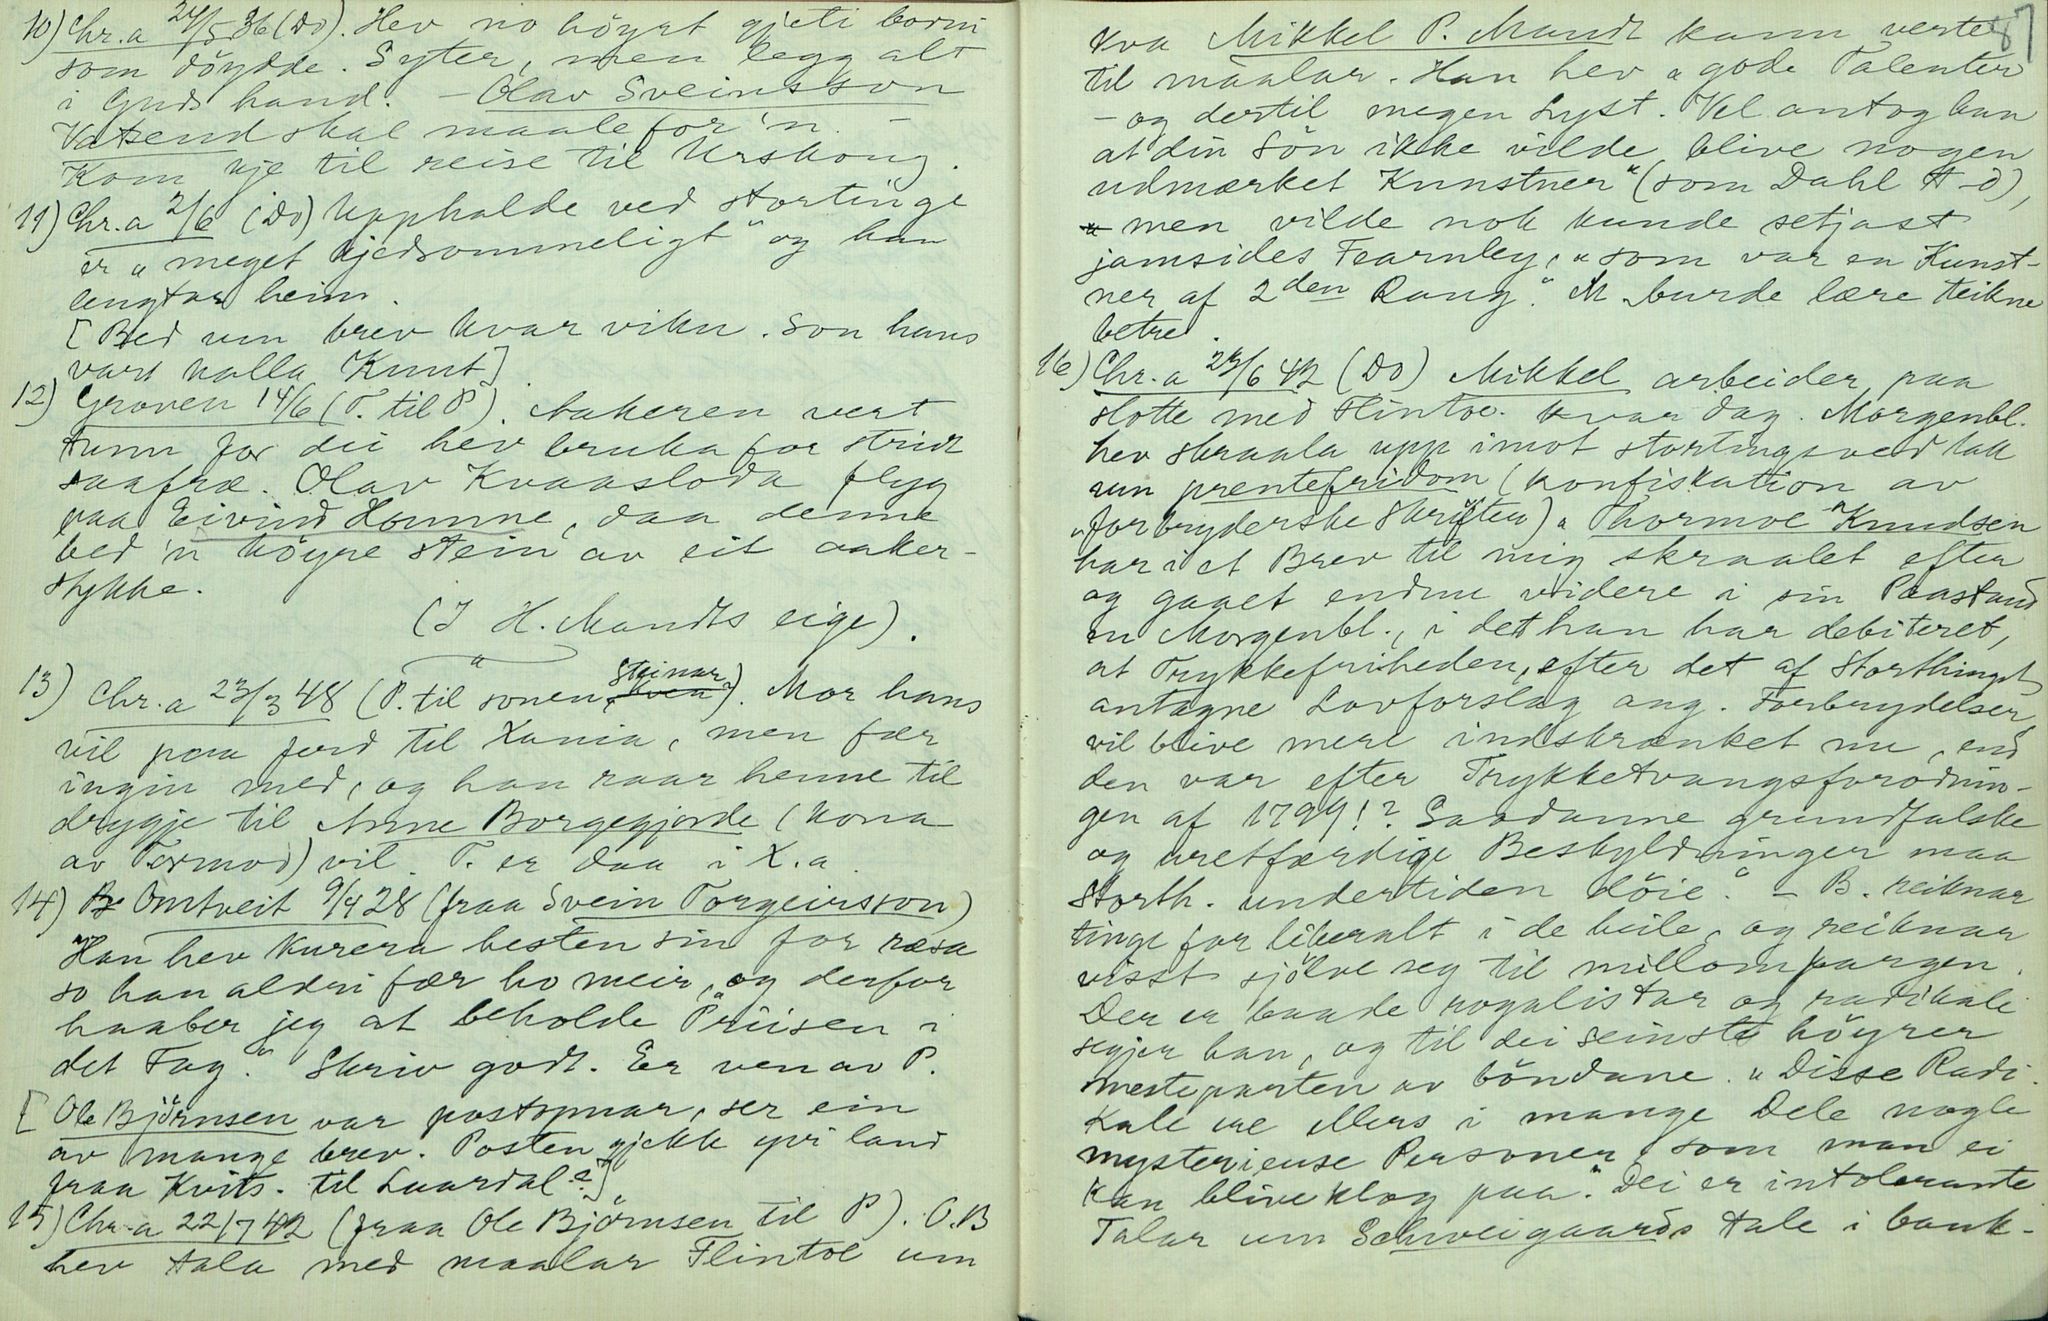 10) Chr.a 24/5 36 (Do). Hev no höyrt gjeti borni
som döydde. Syter, men legg alt
i Guds hand. – Olav Sveinsson
Vatsend skal maale for 'n. –
Kom kje til reise til Urskoug.
11) Chr.a 2/6 (Do) Upphalde ved stortinge
er „meget kjedsommeligt" og han
lengtar heim.
[Bed um brev kvar viku. Son hans
vart kalla Knut]
12) Groven 14/6 (T. til P). Aakeren vert
tunn for dei hev bruka for stridt
saafræ. Olav Kvaasloda flyg
paa Eivind Homme, daa denne
bed 'n köyre stein av eit aaker-
stykke.
(I H. Mandts eige).
13) Chr.a 23/3 48 (P. til sonen Steinar). Mor hans
vil paa ferd til Xania, men fær
ingin med, og han raar henne til
drygje til Anne Borgegjorde (kona
av Tormod) vil. T. er daa i X.a.
14) Omtveit 9/4 28 (fraa Svein Torgeirsson)
Han hev kurera hesten sin for ræsa
so han aldri fær ho meir, og derfor
„haaber jeg at beholde Priisen i
det Fag." Skriv godt. Er ven av P.
[Ole Björnsen var postopnar, ser ein
av mange brev. Posten gjekk yvi land
fraa Kvits. til Laardal?]
15) Chr.a 22/7 42 (fraa Ole Björnsen til P). O.B
hev tala med maalar Flintoe um
87
kva Mikkel P. Mandt kann verte
til maalar. Han hev „gode Talenter
– og dertil megen Lyst. Vel antog han
at din Sön ikke vilde blive nogen
udmærket Kunstner" (som Dahl A–d),
men vilde nok kunde setjast
jamsides Fearnley, „som var en Kunst-
ner af 2den Rang". M burde lære teikne
betre.
16) Chr.a 24/6 42 (Do) Mikkel arbeider paa
slotte med Flintoe kvar dag. Morgenbl.
hev skraala upp imot stortingsvedtak
um prentefridom (konfiskation av
„forbryderske Skrifter") „Thormoe Knudsen
har i et Brev til mig skraalet efter
og gaaet endnu videre i sin Paastand
en Morgenbl., i det han har debiteret,
at Trykkefriheden, efter det af Storthinget
antagne Lovforslag ang. Forbrydelser,
vil blive mere indskrænket nu, end
den var efter Trykketvangsforordnin-
gen af 1799!? Saadanne grundfalske
og uretfærdige Beskyldninger maa
Storth. undertiden döie." – B. reiknar
tinge for liberalt i de heile, og reiknar
visst sjölve seg til millompargen.
Der er baade rogalistar og radikale
segjer han, og til dei seinste höyrer
mesteparten av böndane. „Disse Radi-
kale ere ellers i mange Dele nogle
mysterieuse Personer, som man ei
kan blive klog paa". Dei er intolerante
Talar um Schweigaards tale i bank-